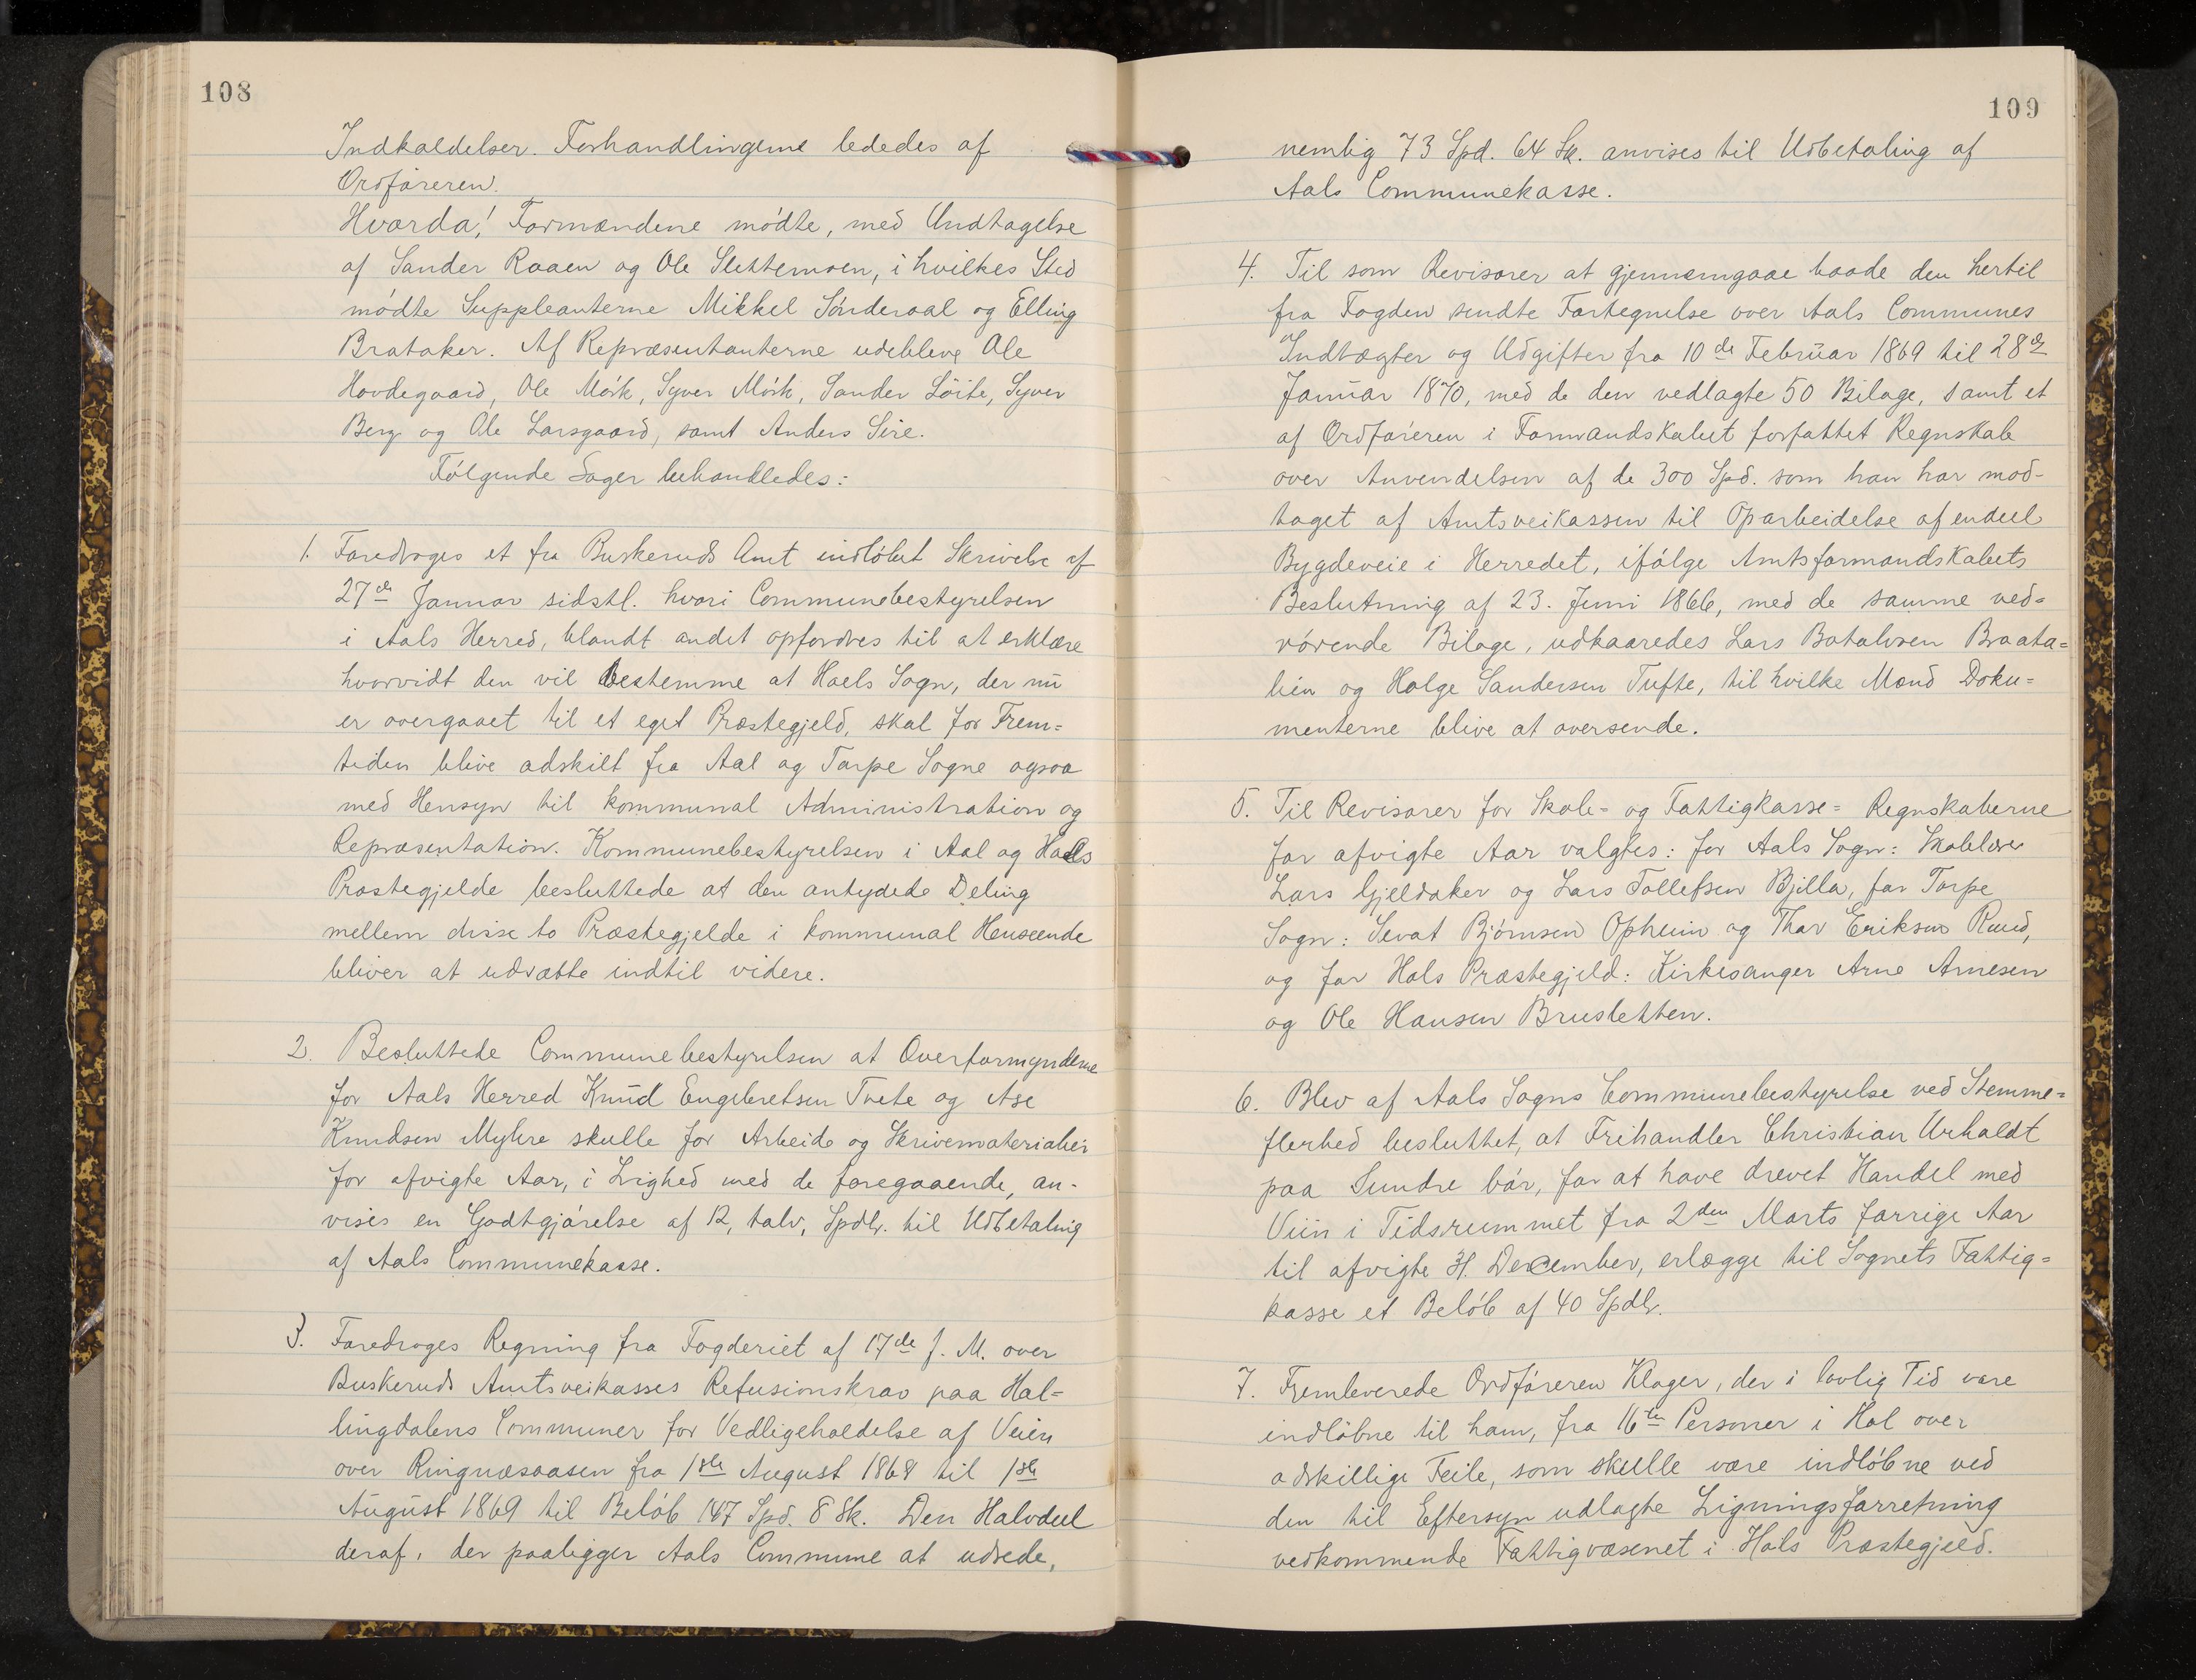 108
Indkaldelser. Forhandlingerne lededes af
Ordføreren.
Hvorda! Formændene mødte, med Undtagelse
af Sander Raaen og Ole Slettemoen, i hvilkes Sted
mødte Suppleanterne Mikkel Sønderaal og Elling
Brataker. Af Repræsentanterne udebleve Ole
Hovdegaard, Ole Mørk, Syver Mørk, Sander Löite, Syver
Berg og Ole Larsgaard, samt Anders Sire.
Følgende Sager behandledes:
1. Foredroges et fra Buskeruds Amt indløbet Skrivelse af
27de Januar sidstl. hvori Communebestyrelsen
i Aals Herred, blandt andet opfordres til at erklære
hvorvidt den vil bestemme at Hoels Sogn, der nu
er overgaaet til et eget Præstegjeld, skal for Frem=
tiden blive adskilt fra Aal og Torpe Sogne ogsaa
med Hensyn til kommunal Administration og
Repræsentation. Kommunebestyrelsen i Aal og Hoels
Præstegjelde besluttede at den antydede Deling
mellem disse to Præstegjelde i kommunal Henseende
bliver at udsætte indtil videre.
2. Besluttede Communebestyrelsen at Overformynderne
for Aals Herred Knud Engebretsen Tvete og Ase
Knudsen Myhre skulle for Arbeide og Skrivematerialier
for afvigte Aar, i Lighed med de foregaaende, an-
vises en Godtgjørelse af 12, tolv, Spdlr. til Udbetaling
af Aals Communekasse.
3. Foredroges Regning fra Fogderiet af 17de f. M. over
Buskeruds Amtsveikasses Refusionskrav paa Hal=
lingdalens Communer for Vedligeholdelse af Veien
over Ringnæsaasen fra 1ste August 1868 til 1ste
August 1869 til Beløb 147 Spd. 8 Sk. Den Halvdeel
deraf, der paaligger Aals Commune at udrede,
109
nemlig 73 Spd. 64 Sk. anvises til Udbetaling af
Aals Communekasse.
4. Til som Revisorer at gjennemgaae baade den hertil
fra Fogden sendte Fortegnelse over Aals Communes
Indtægter og Udgifter fra 10de Februar 1869 til 28de
Januar 1870, med de den vedlagte 50 Bilage, samt et
af Ordføreren i Formandskabet forfattet Regnskab
over Anvendelsen af de 300 Spd. som han har mod-
taget af Amtsveikassen til Oparbeidelse af endeel
Bygdeveie i Herredet, ifølge Amtsformandskabets
Beslutning af 23. Juni 1866, med de samme ved=
rørende Bilage, udkaaredes Lars Botolvsen Braata=
lien og Holge Sandersen Tufte, til hvilke Mænd Doku=
menterne blive at oversende.
5. Til Revisorer for Skole= og Fattigkasse= Regnskaberne
for afvigte Aar valgtes: for Aals Sogn: Skolelærer
Lars Gjeldaker og Lars Tollefsen Bjella, for Torpe
Sogn: Sevat Bjørnsen Opheim og Thor Eriksen Ruud,
og for Hols Præstegjeld: Kirkesanger Arne Arnesen
og Ole Hansen Brusletten.
6. Blev af Aals Sogns Communebestyrelse ved Stemme=
flerhed besluttet, at Frihandler Christian Urholdt
paa Sundre bør, for at have drevet Handel med
Viin i Tidsrummet fra 2den Marts forrige Aar
til afvigte 31. December, erlægge til Sognets Fattig=
kasse et Beløb af 40 Spdlr.
7. Fremleverede Ordføreren Klager, der i lovlig Tid vare
indløbne til ham, fra 16ten Personer i Hol over
adskillige Feile, som skulle være indløbne ved
den til Eftersyn udlagte Ligningsforretning
vedkommende Fattigvæsenet i Hols Præstegjeld.